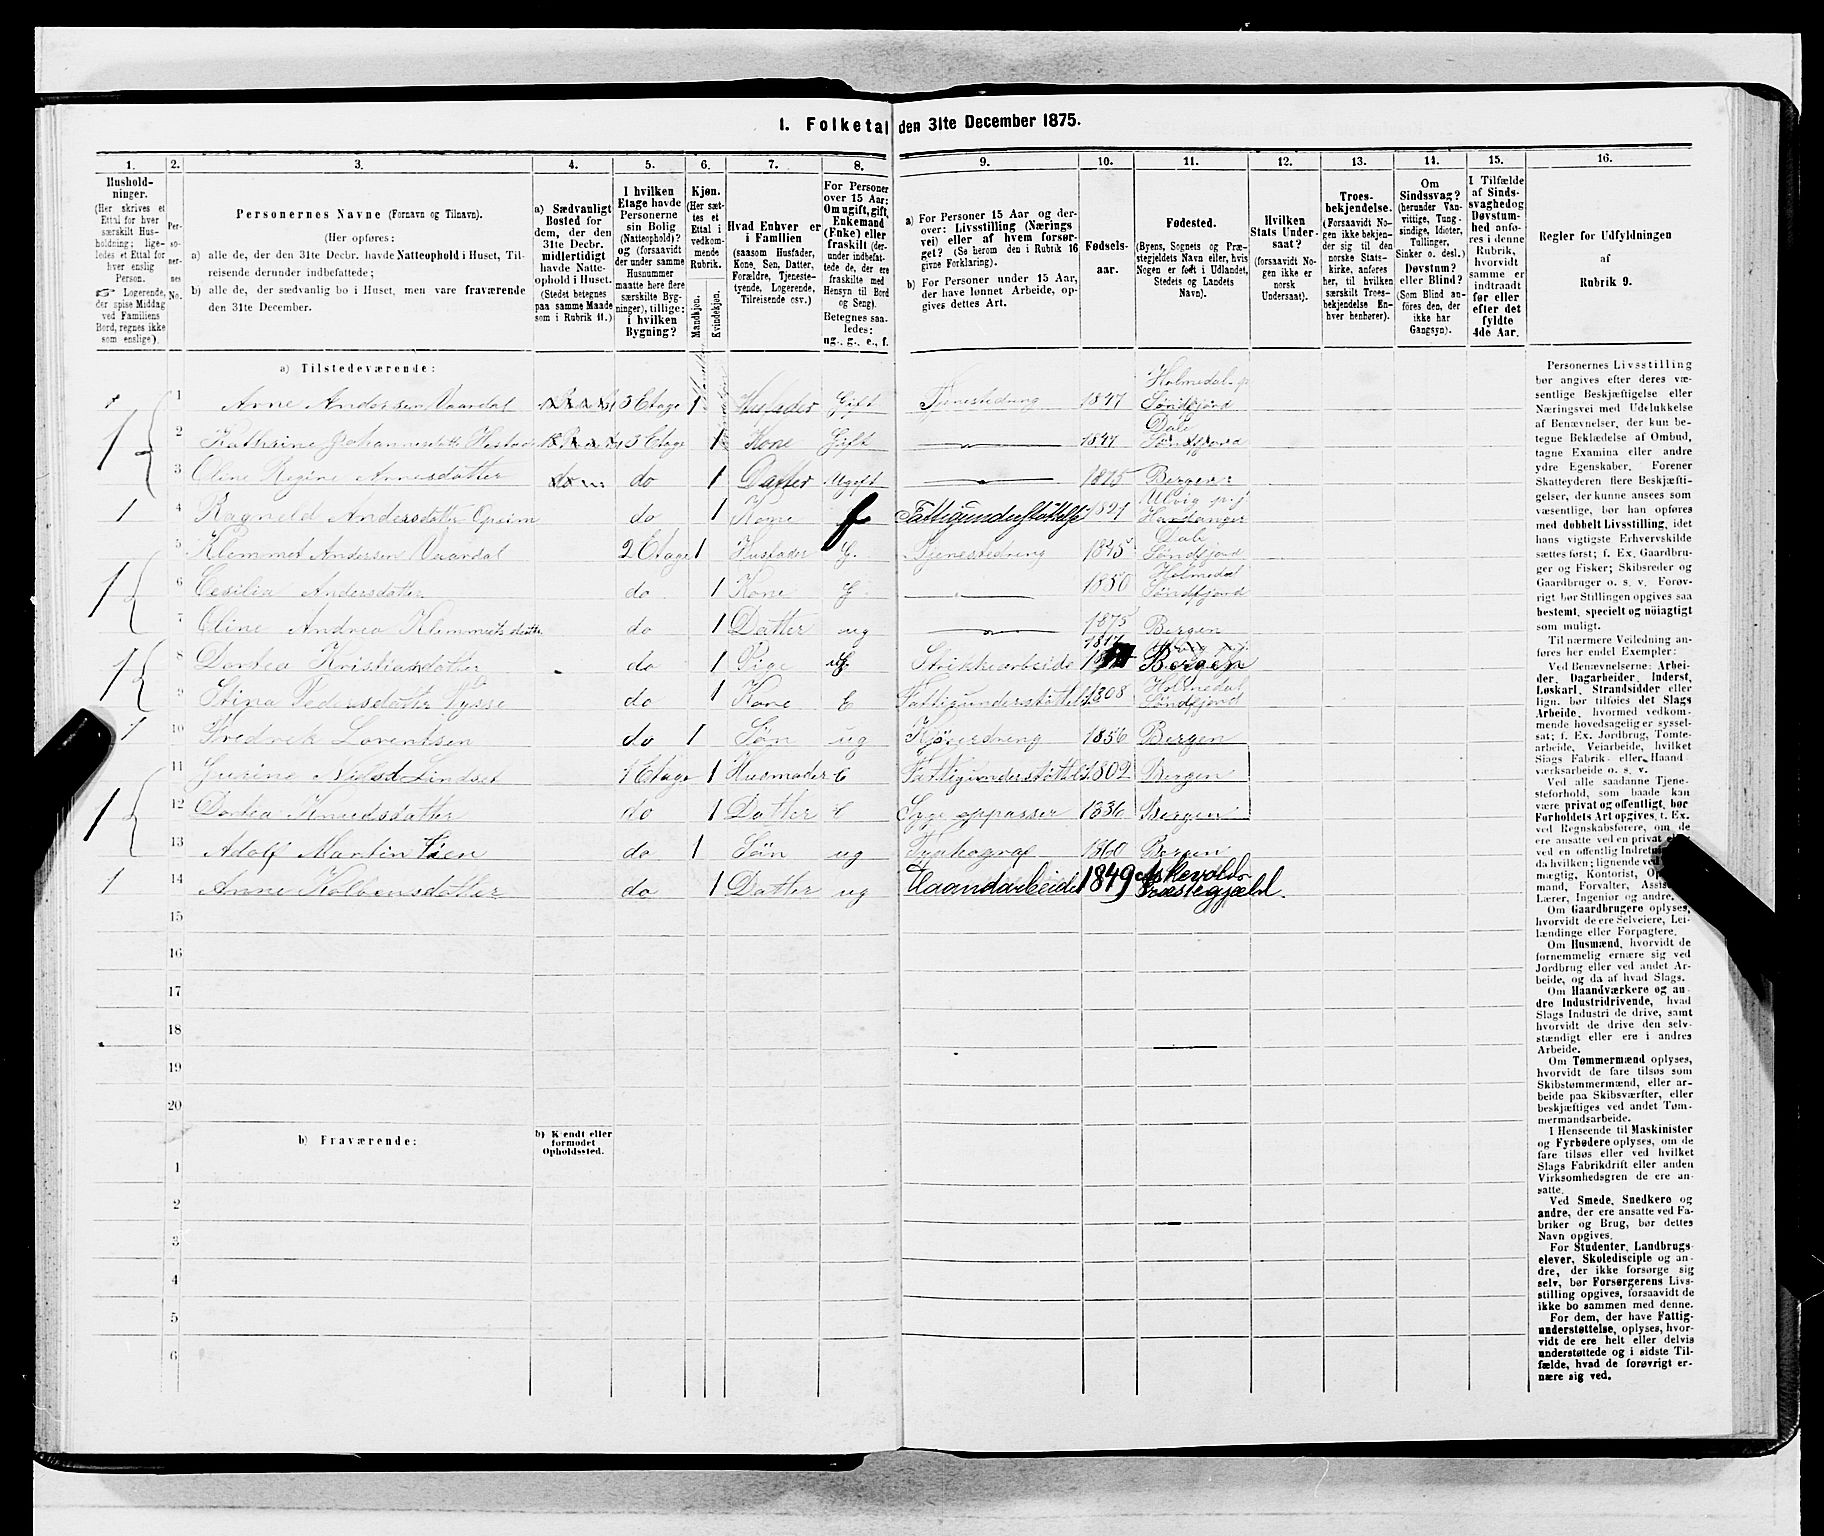 1. Folketal den 31te December 1875.
1.
2.
3.
4.
5.
6.
7.
8.
9.
10.
11.
12.
13.
14.
15.
16.
Hushold-
ninger.
(Her skrives et
Ettal for hver
særskilt Hus-
holdning; lige-
ledes et Ettal for
hver enslig
Person.
☞ Logerende,
der spise Middag
ved Familiens
Bord, regnes ikke
som enslige).
Per-
so-
ner-
nes
No.
Personernes Navne (Fornavn og Tilnavn).
(Her opføres:
a) alle de, der den 31te Decbr. havde Natteophold i Huset, Til-
reisende derunder indbefattede;
b) alle de, der sædvanlig bo i Huset, men vare fraværende
den 31te December.
a) Sædvanligt
Bosted for
dem, der den
31te Decbr.
midlertidigt
havde Natte-
ophold i Huset.
(Stedet betegnes
paa samme Maade
som i Rubrik 11.)
I hvilken
Etage havde
Personerne
sin Bolig
(Natteophold)?
(forsaavidt
der under samme
Husnummer
maatte høre flere
særskilte Byg-
ninger), tillige:
i hvilken
Bygning?
Kjøn.
(Her sæt-
tes et
Ettal i
vedkom-
mende
Rubrik.
Mandkjøn.
Kvindekjøn.
Hvad Enhver er
i Familien
(saasom Husfader,
Kone, Søn, Datter,
Forældre, Tjeneste-
tyende, Logerende,
Tilreisende osv.)
For Personer
over 15 Aar:
Om ugift, gift,
Enkemand
(Enke) eller
fraskilt (der-
under indbefat-
tede de, der ere
fraskilte med
Hensyn til Bord
og Seng).
Betegnes saa-
ledes:
ug., g., e., f.
a) For Personer 15 Aar og der-
over: Livsstilling (Nærings
vei) eller af hvem forsør-
get? (Se herom den i Rubrik 16
givne Forklaring).
b) For Personer under 15 Aar,
der have lønnet Arbeide, op-
gives dettes Art.
Fødsels-
aar.
Fødested.
(Byens, Sognets og Præ-
stegjeldets Navn eller, hvis
Nogen er født i Udlandet,
Stedets og Landets
Navn).
Hvilken
Stats Under-
saat?
(forsaavidt No-
gen ikke er
norsk
Undersaat).
Troes-
bekjendelse.
(Forsaavidt No-
gen ikke bekjen-
der sig til den
norske Stats-
kirke, anføres
her, til hvilken
særskilt Troes-
bekjendelse En-
hver henhører).
Om
Sindssvag?
(herunder Van-
vittige, Tung-
sindige, Idioter,
Tullinger,
Sinker o. desl.)
Døvstum?
eller Blind?
(Som Blind an-
føres den, der
ikke har
Gangsyn).
I Tilfælde
af Sinds-
svaghed og
Døvstum-
hed anfø-
res i denne
Rubrik,
hvorvidt
samme er
indtraadt
før eller
efter det
fyldte
4de Aar.
Regler for Udfyldningen
af
Rubrik 9.
a) Tilstedeværende:
1 Arne Andersen Vaardal 3 Etage 1 Husfader Gift Tjenestedreng 1847 Holmedal Søndfjord
2 Kathrine Johannesdatter 3 Etage 1 Kone Gift 1847 Dale Søndfjord
3 Oline Regine Arnesdatter do do 1 Datter Ugift 1875 Bergen
1 4 Ragnild Andersdatter Opeim do 1 Kone f Fattigunderstøttelse 1821 Ulvig Hardanger
5 Klemmet Andersen Vaardal 2 Etage 1 Husfader G. Tjenestedreng 1845 Dale Søndfjord
1 6 Cesilia Andersdatter do 1 Kone G 1850 Holmedal Søndfjord
7 Oline Andrea Klemmetsdatter do 1 Datter ug 1875 Bergen
1 8 Dortea Kristiansdatter do 1 Pige ug. Strikkearbeide 1817 Bergen
9 Stina Pedersdatter do 1 Kone E Fattigunderstøttelse 1808 Holmedal Søndfjord
1 10 Fredrek Lorentsen do 1 Søn ug Kjøredreng 1856 Bergen
11 Gurine Nielsd Lindset 1 Etage 1 Husmoder E Fattigunderstøttelse 1802 Bergen
1 12 Dortea Knudsdatter do 1 Datter E Syge oppasser 1836 Bergen
13 Adolf Martin do 1 Søn ug Typhograf 1860 Bergen
1 14 Anne Kolbensdatter do 1 Datter ug Haandarbeide 1849 Askevold Præstegjæld.
15
16
17
18
19
20
b) Fraværende:
b) Kjendt eller
formodet
Opholdssted.
1
2
3
4
5
6
Personernes Livsstilling
bør angives efter deres væ-
sentlige Beskjæftigelse eller
Næringsvei med Udelukkelse
af Benævnelser, der kun be-
tegne Beklædelse af Ombud,
tagne Examina eller andre
ydre Egenskaber. Forener
Skatteyderen flere Beskjæfti-
gelser, der kunne ansees som
væsentlige, bør han opføres
med dobbelt Livsstilling, idet
hans vigtigste Erhvervskilde
sættes først; f. Ex. Gaardbru-
ger og Fisker; Skibsreder og
Gaardbruger o. s. v. Forøv-
rigt bør Stillingen opgives saa
bestemt, specielt og nøiagtigt
som muligt.
Til nærmere Veiledning an-
føres her endel Exempler:
Ved Benævnelserne: Arbei-
der, Dagarbeider, Inderst,
Løskarl, Strandsidder eller
lign. bør tilføies det Slags
Arbeide, hvormed vedkom-
mende hovedsagelig er syssel-
sat; f. Ex. Jordbrug, Tomte-
arbeide, Veiarbeide, hvilket
Slags Fabrik- eller Haand
værksarbeide o. s. v.
Ved alle saadanne Tjene-
steforhold, som baade kan
være privat og offentligt, bør
Forholdets Art opgives, t. Ex.
ved Regnskabsførere, om de
ere ansatte ved en privat eller
ved en offentlig Indretning
da hvilken; lignende ved
mægtig, Kontorist,
mand, Forvalter,
Lærer, Ingeniør og andre.
Om Gaardbrugere oplyses,
hvorvidt de ere Selveiere, Lei-
lændinge eller Forpagtere.
Om Husmænd, hvorvidt de
fornemmelig ernære sig ved
Jordbrug eller ved andet Ar-
beide, og da af hvad Slags.
Om Haandværkere og an-
dre Industridrivende, hvad
Slags Industri de drive, samt
hvorvidt de drive den selv-
stændigt eller ere i andres
Arbeide.
Om Tømmermænd oplyses,
hvorvidt de fare tilsøs som
Skibstømmermænd, eller ar-
beide paa Skibsværfter, eller
beskjæftiges ved andet Tøm-
mermandsarbeide.
I Henseende til Maskinister
og Fyrbødere oplyses, om de
fare tilsøs eller ved hvilket
Slags Fabrikdrift eller anden
Virksomhedsgren de ere an-
satte.
Ved Smede, Snedkere og
andre, der ere ansatte ved Fa-
briker og Brug, bør dettes
Navn opgives.
For Studenter, Landbrugs-
elever, Skoledisciple og an-
dre, der ikke forsørge sig
selv, bør Forsørgerens Livs-
stilling opgives, forsaavidt de
ikke bo sammen med denne.
For dem, der have Fattig-
understøttelse, oplyses, hvor-
vidt de ere helt eller delvis
understøttede og i sidste Til-
fælde, hvad de forøvrigt er-
nære sig ved.